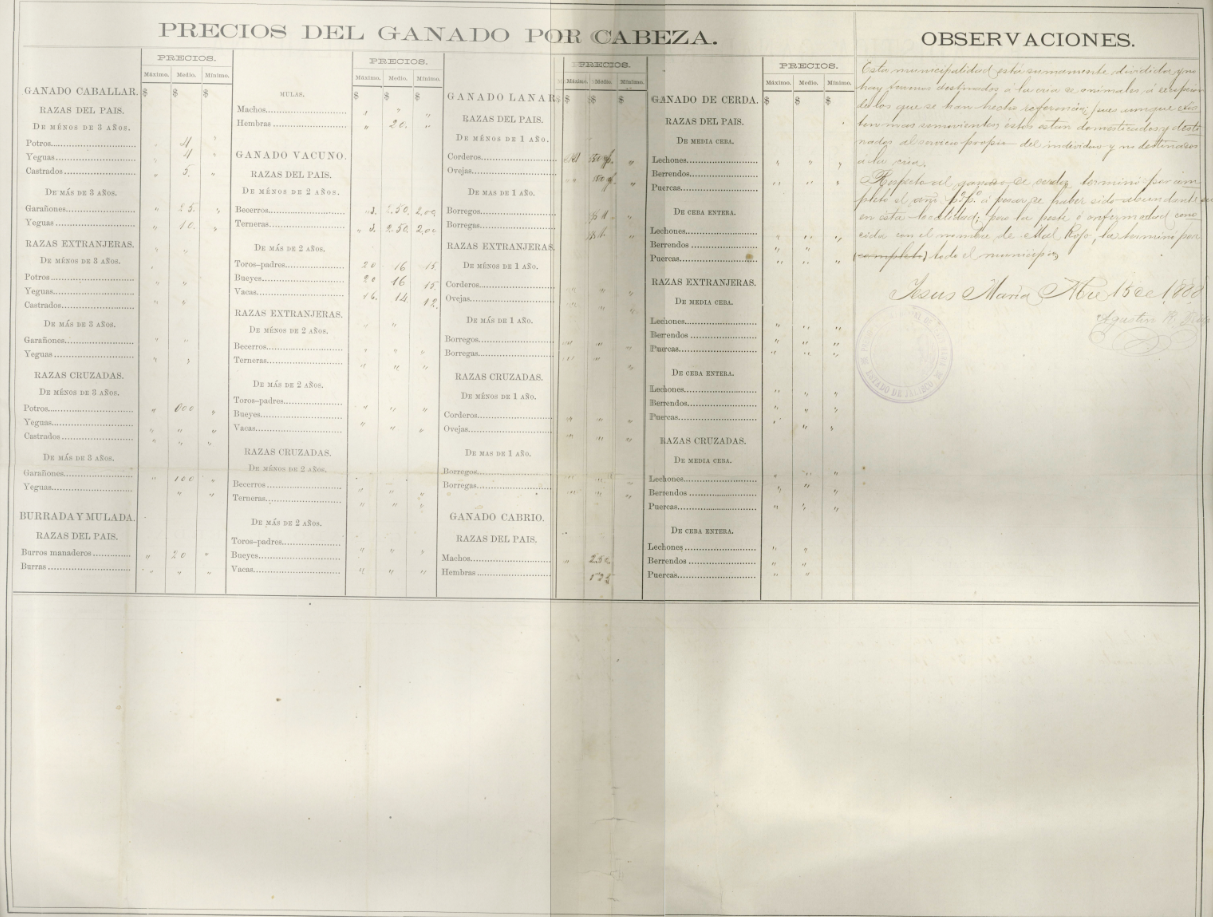 PRECIOS DEL GANADO POR CABEZA.
OBSERVACIONES.
PRECIOS.
Máximo. Medio. Mínimo.
GANADO CABALLAR. $ $ $
RAZAS DEL PAIS.
DE MÉNOS DE 3 AÑOS.
Potros " 4 "
Yeguas " 4 "
Castrados " 5 "
DE MÁS DE 3 AÑOS.
Garañones " 25 "
Yeguas " 10 "
RAZAS EXTRANJERAS.
DE MÉNOS DE 3 AÑOS.
Potros " "
Yeguas " "
Castrados " "
DE MÁS DE 3 AÑOS.
Garañones " "
Yeguas " "
RAZAS CRUZADAS.
DE MÉNOS DE 3 AÑOS.
Potros " "
Yeguas " " "
Castrados " " "
DE MÁS DE 3 AÑOS.
Garañones " 100 "
Yeguas " "
BURRADA Y MULADA.
RAZAS DEL PAIS.
Burros manaderos " 20 "
Burras " " "
PRECIOS.
Máximo. Medio. Mínimo.
MULAS. $ $ $
Machos " " "
Hembras " 20 "
GANADO VACUNO.
RAZAS DEL PAIS.
DE MÉNOS DE 2 AÑOS.
Becerros 3. 2.50 2,00
Terneras 3. 2.50 2,00
DE MÁS DE 2 AÑOS.
Toros-padres 20 16 15
Bueyes 20 16 15
Vacas 16 14 12
RAZAS EXTRANJERAS.
DE MÉNOS DE 2 AÑOS.
Becerros " " "
Terneras " " "
DE MÁS DE 2 AÑOS.
Toros-padres
Bueyes " " "
Vacas " " "
RAZAS CRUZADAS.
DE MÉNOS DE 2 AÑOS.
Becerros " " "
Terneras " " "
DE MÁS DE 2 AÑOS.
Toros-padres
Bueyes " " "
Vacas " " "
PRECIOS.
Máximo. Medio. Mínimo.
GANADO LANAR $ $ $
RAZAS DEL PAIS.
DE MÉNOS DE 1 AÑO.
Corderos
Ovejas
DE MAS DE 1 AÑO.
Borregos
Borregas
RAZAS EXTRANJERAS.
DE MÉNOS DE 1 AÑO.
Corderos " " "
Ovejas " " "
DE MÁS DE 1 AÑO.
Borregos " " "
Borregas " " "
RAZAS CRUZADAS.
DE MÉNOS DE 1 AÑO.
Corderos " " "
Ovejas " " "
DE MAS DE 1 AÑO.
Borregos
Borregas " " "
GANADO CABRIO.
RAZAS DEL PAIS.
Machos " 2.50
Hembras
PRECIOS.
Máximo. Medio. Mínimo.
GANADO DE CERDA. $ $ $
RAZAS DEL PAIS.
DE MEDIA CEBA.
Lechones " " "
Berrendos
Puercas " " "
DE CEBA ENTERA.
Lechones " " "
Berrendos " " "
Puercas " " "
RAZAS EXTRANJERAS.
DE MEDIA CEBA.
Lechones " " "
Berrendos " " "
Puercas " " "
DE CEBA ENTERA.
Lechones " " "
Berrendos " " "
Puercas " " "
RAZAS CRUZADAS.
DE MEDIA CEBA.
Lechones " " "
Berrendos " " "
Puercas " " "
DE CEBA ENTERA.
Lechones " "
Berrendos " "
Puercas " "
Esta municipalidad esta sumamente dividida y no
hay destinados á la cria de animales
de los que se han hecho referencia; pues aunque
estos estan domesticados y desti
nados al servicio propio del individuo y no destinados
á la cria.
Respecto al ganado de cerda terminó por com
pleto el año pº pº á pesar de haber sido abundante
en esta localidad; pues la peste ó enfermedad cono
cida con el nombre de Mal Rojo, la terminó por
(completo) todo el municipio
Jesus Maria 15 de 1888
Agustin R.